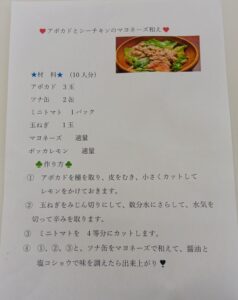 ♥アボカドとシーチキンのマヨネーズ和え♥
★材　料★（10人分）
アボカド　3玉
ツナ缶　2缶
ミニトマト　1パック
玉ねぎ　1玉
マヨネーズ　適量
ポッカレモン　適量
♣作り方♣
① アボカドを種を取り、皮をむき、小さくカットして
レモンをかけておきます。
② 玉ねぎをみじん切りにして、数分水にさらして、水気を
切って辛みを取ります。
③ ミニトマトを 4等分にカットします。
④ ①、②、③と、ツナ缶をマヨネーズで和えて、醤油と
塩コショウで味を調えたら出来上がり❣